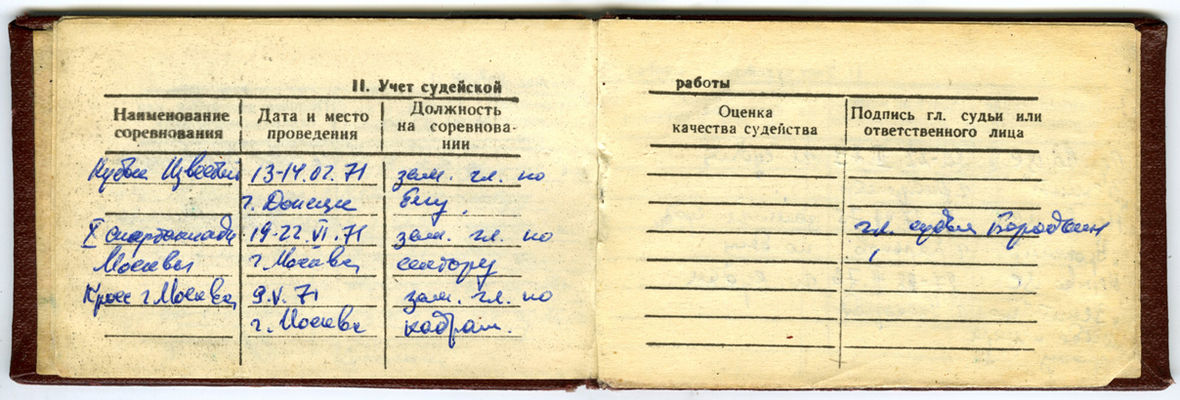 II. Учет судейской работы
Наименование соревнования
Дата и место проведения
Должность на соревновании
Оценка качества судейства
Подпись гл. судьи или ответственного лица
Кубок Известий 13-14.02.71 зам. гл. по
г. Донецк бегу.
X спартакиада 19-22.VI.71 зам. гл. по
Москвы г. Москва сектору
гл. судья
Кросс г. Москва 9.V.71 зам. гл. по
г. Москва кадрам.